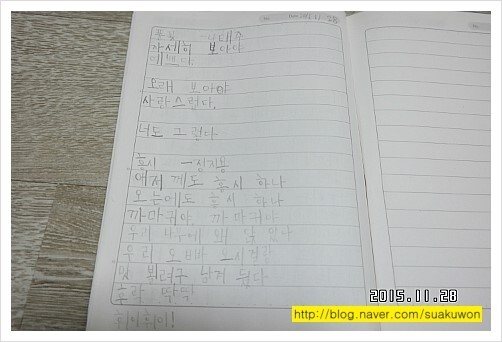 풀꽃 나태주
자세히 보아야
예쁘다.
오래 보아야
사랑스럽다.
너도 그렇다
홍시 -정지용
어저께도 홍시 하나
오늘에도 홍시 하나
까마귀야, 까마귀야
우리 나무에 왜 앉았나
우리 오빠 오시걸랑
맛 뵐려구 남겨 뒀다
후락 딱딱
훠이 훠이!
2015.11.28
http://blog.naver.com/suakuwon